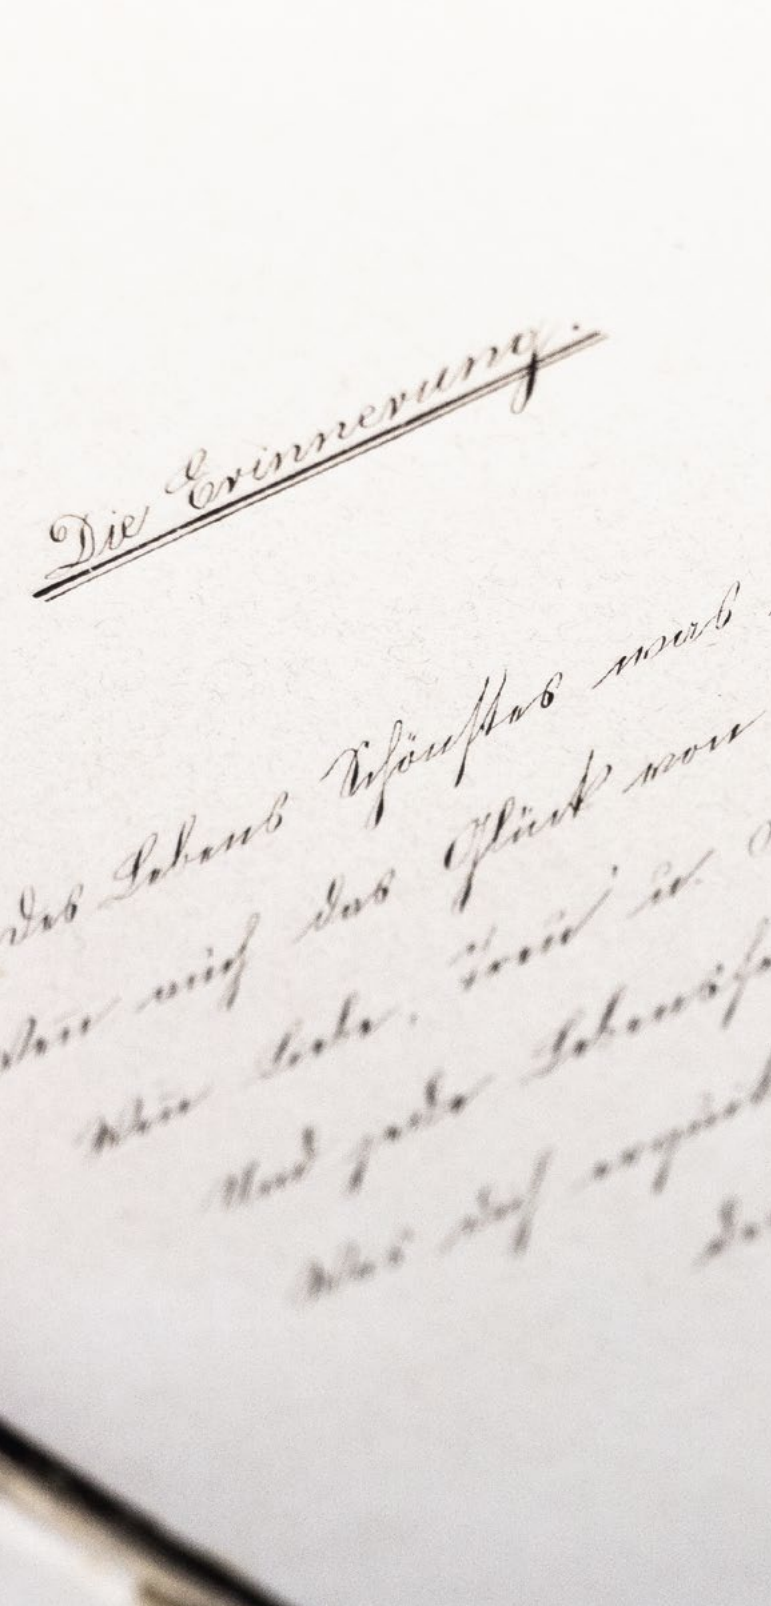 Die Erinnerung.
des Lebens Schönstes wars
Wenn auch das Glück von
Wenn Liebe, Treu' u.
Und jede Lebens
Was doch erquick